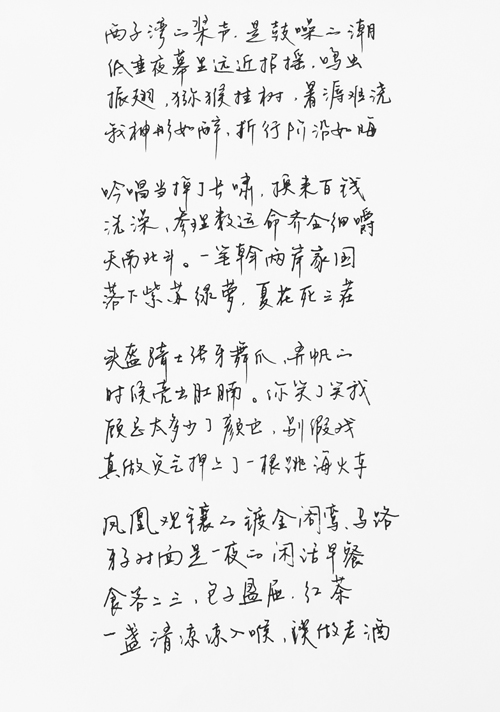 西子湾的桨声，是鼓噪的潮
低垂夜幕里远近招摇，鸣虫
振翅，猕猴挂树，暑溽难浇
我神形如醉，折行阶沿如晦
吟唱当掉了长啸，换来百钱
洗澡，参理数运命齐全细嚼
天南北斗。一笔斡两岸家国
落下紫苏绿萝，夏花死三茬
头盔骑士张牙舞爪，弄帆的
时候亮出肚腩。你笑了笑我
顾忌太多少了颜色，别假戏
真做负气押上了一根跳海火车
凤凰观镶的镀金闹鸾，马路
牙子对面是一夜的闲话早餐
食客二三，包子盈屉，红茶
一盏清凉凉入喉，误做老酒